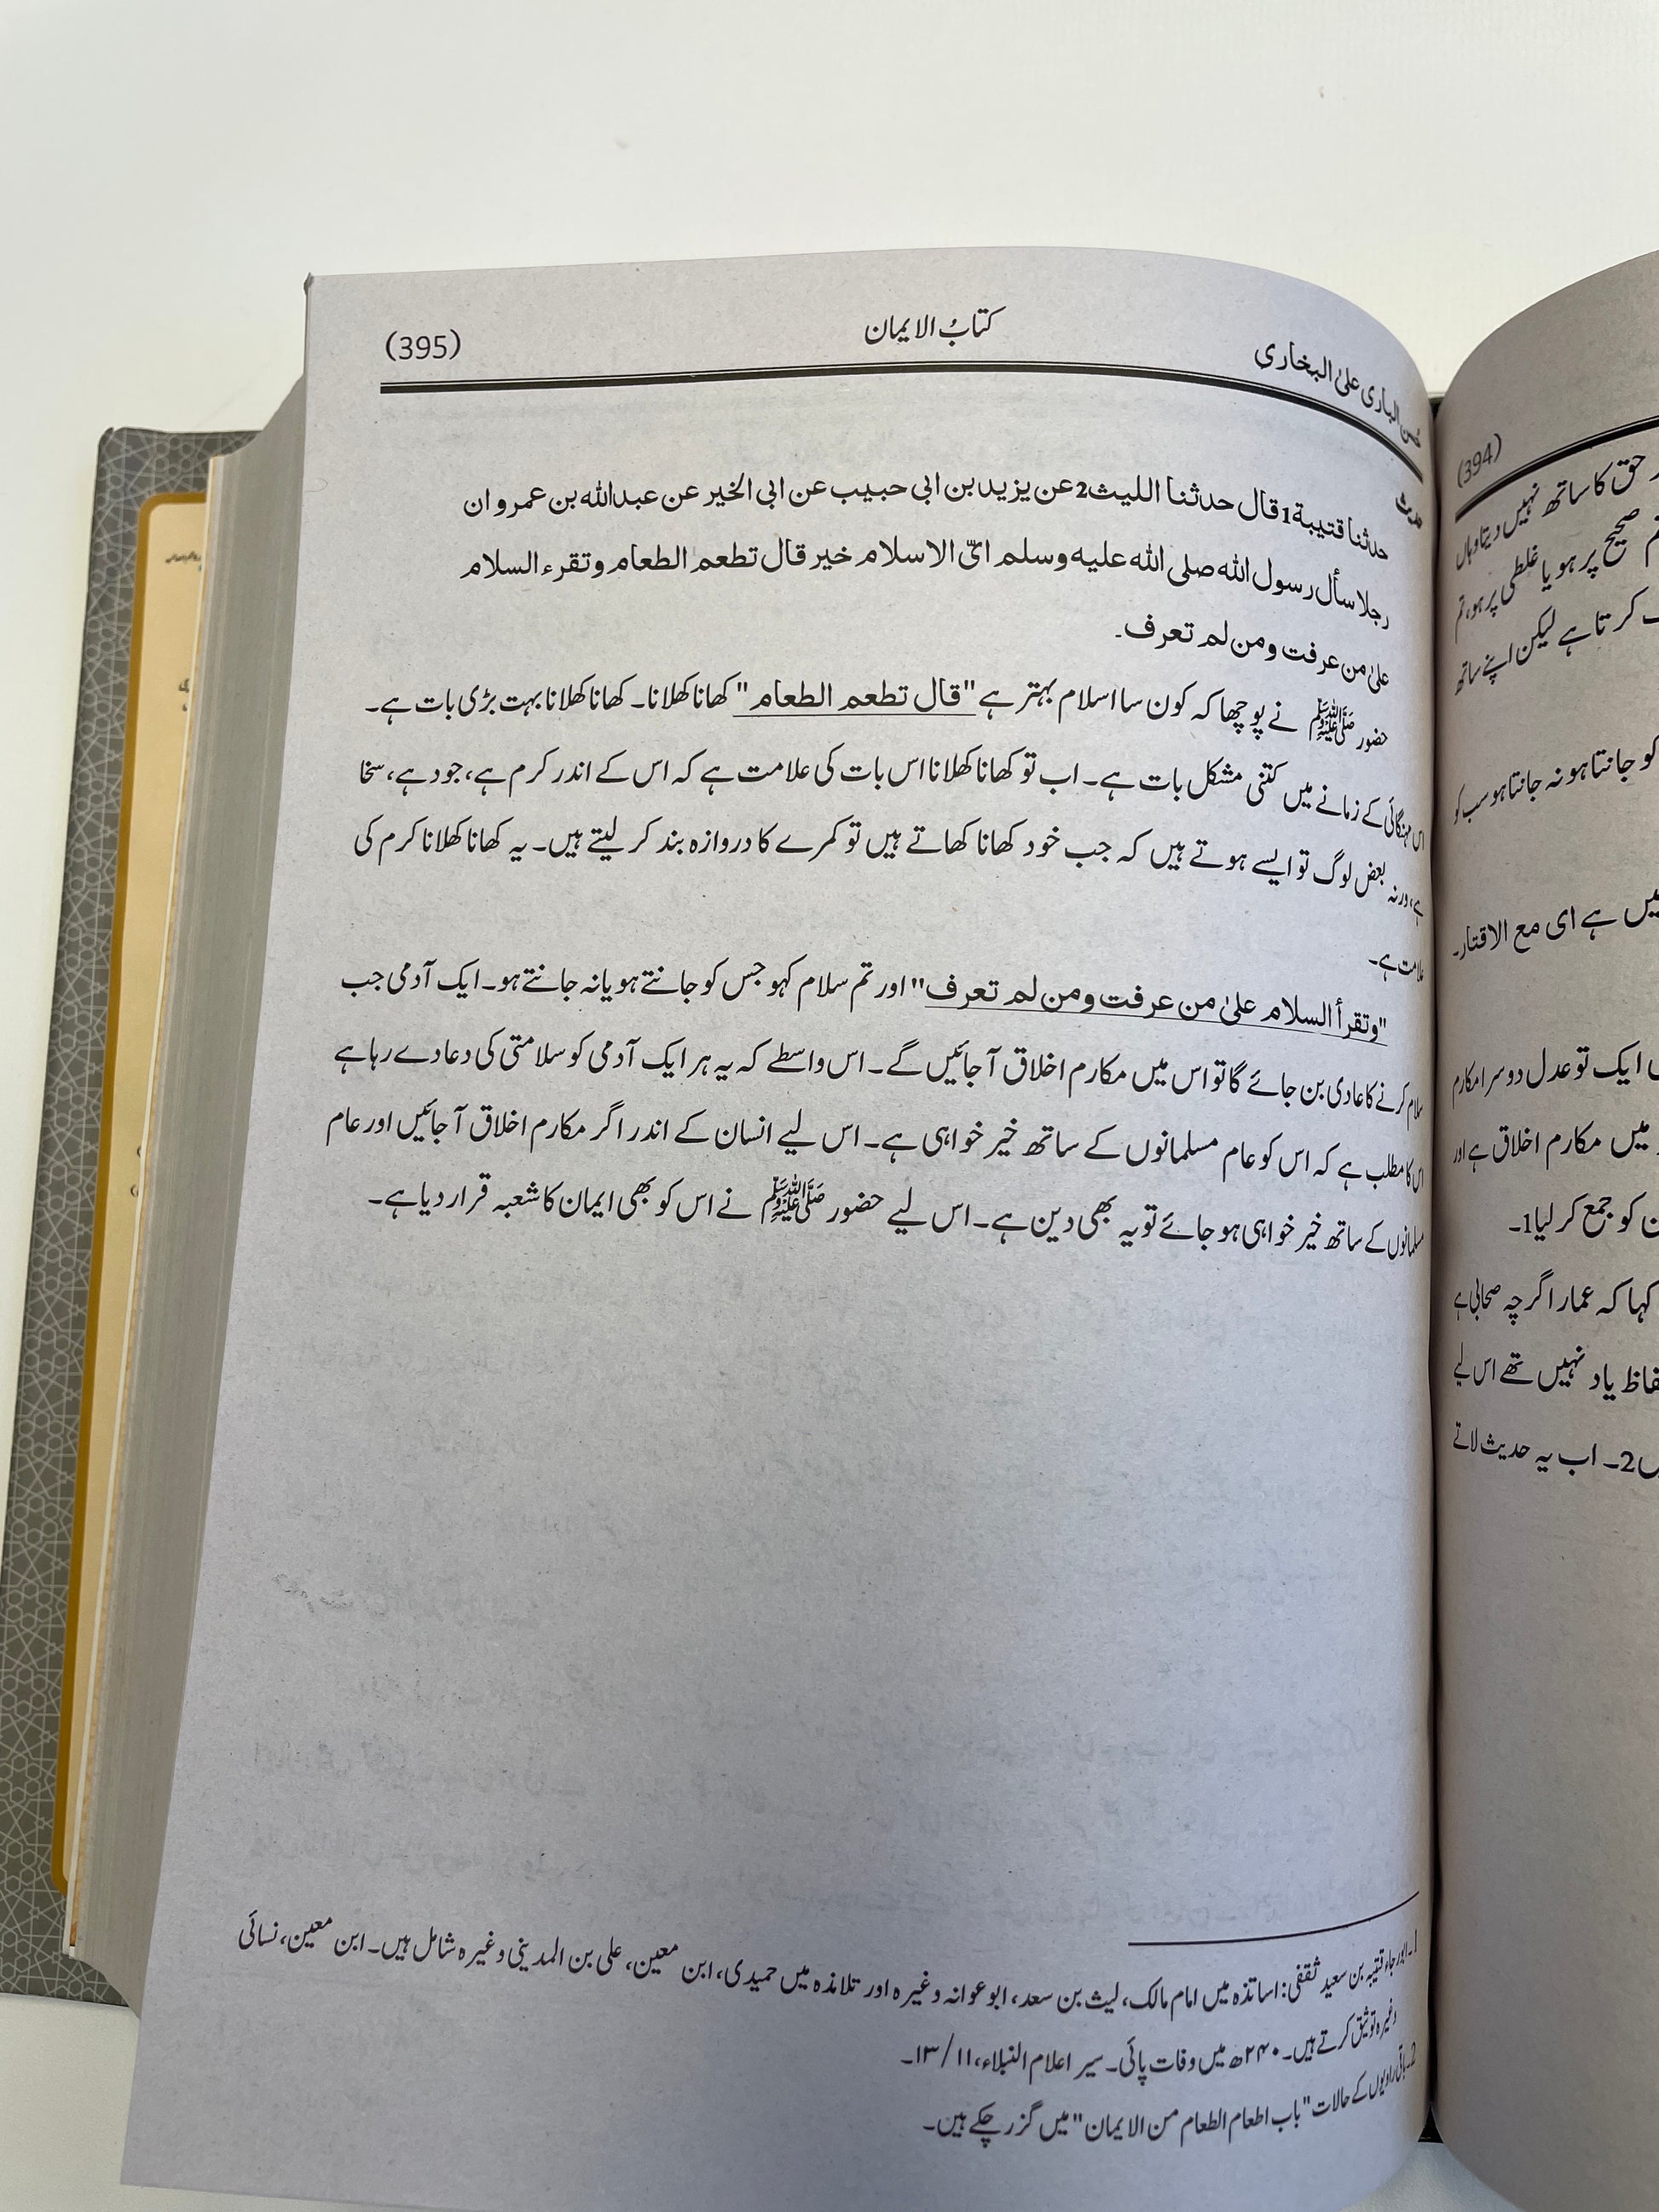 حُسن الباری علیٰ البخاری
کتابُ الایمان
(395)
حدیث
حدثنا قتیبة1 قال حدثنا اللیث2 عن یزید بن ابی حبیب عن ابی الخیر عن عبدالله بن عمرو ان
رجلا سأل رسول الله صلی الله علیه وسلم ایّ الاسلام خیر قال تطعم الطعام وتقرء السلام
علیٰ من عرفت ومن لم تعرف۔
حضورﷺ نے پوچھا کہ کون سا اسلام بہتر ہے "قال تطعم الطعام" کھانا کھلانا۔ کھانا کھلانا بہت بڑی بات ہے۔
اس مہنگائی کے زمانے میں کتنی مشکل بات ہے۔ اب تو کھانا کھلانا اس بات کی علامت ہے کہ اس کے اندر کرم ہے، جود ہے، سخا
ہے، ورنہ بعض لوگ تو ایسے ہوتے ہیں کہ جب خود کھانا کھاتے ہیں تو کمرے کا دروازہ بند کر لیتے ہیں۔ یہ کھانا کھلانا کرم کی
علامت ہے۔
"وتقرأ السلام علیٰ من عرفت ومن لم تعرف" اور تم سلام کہو جس کو جانتے ہو یا نہ جانتے ہو۔ ایک آدمی جب
سلام کرنے کا عادی بن جائے گا تو اس میں مکارم اخلاق آ جائیں گے۔ اس واسطے کہ یہ ہر ایک آدمی کو سلامتی کی دعا دے رہا ہے
اس کا مطلب ہے کہ اس کو عام مسلمانوں کے ساتھ خیر خواہی ہے۔ اس لیے انسان کے اندر اگر مکارم اخلاق آ جائیں اور عام
مسلمانوں کے ساتھ خیر خواہی ہو جائے تو یہ بھی دین ہے۔ اس لیے حضورﷺ نے اس کو بھی ایمان کا شعبہ قرار دیا ہے۔
1۔ ابو رجاء قتیبہ بن سعید ثقفی: اساتذہ میں امام مالک، لیث بن سعد، ابو عوانہ وغیرہ اور تلامذہ میں حمیدی، ابن معین، علی بن المدینی وغیرہ شامل ہیں۔ ابن معین، نسائی
وغیرہ توثیق کرتے ہیں۔ ۲۴۰ھ میں وفات پائی۔ سیر اعلام النبلاء، ۱۱/۱۳۔
2۔ باقی راویوں کے حالات "باب اطعام الطعام من الایمان" میں گزر چکے ہیں۔
(394)
حق کا ساتھ نہیں دیتا وہاں
صحیح پر ہو یا غلطی پر ہو، تم
کرتا ہے لیکن اپنے ساتھ
کو جانتا ہو نہ جانتا ہو سب کو
ہے ای مع الاقتار۔
ایک تو عدل دوسرا مکارم
میں مکارم اخلاق ہے اور
کو جمع کر لیا1۔
کہا کہ عمار اگرچہ صحابی ہے
یاد نہیں تھے اس لیے
2۔ اب یہ حدیث لاتے